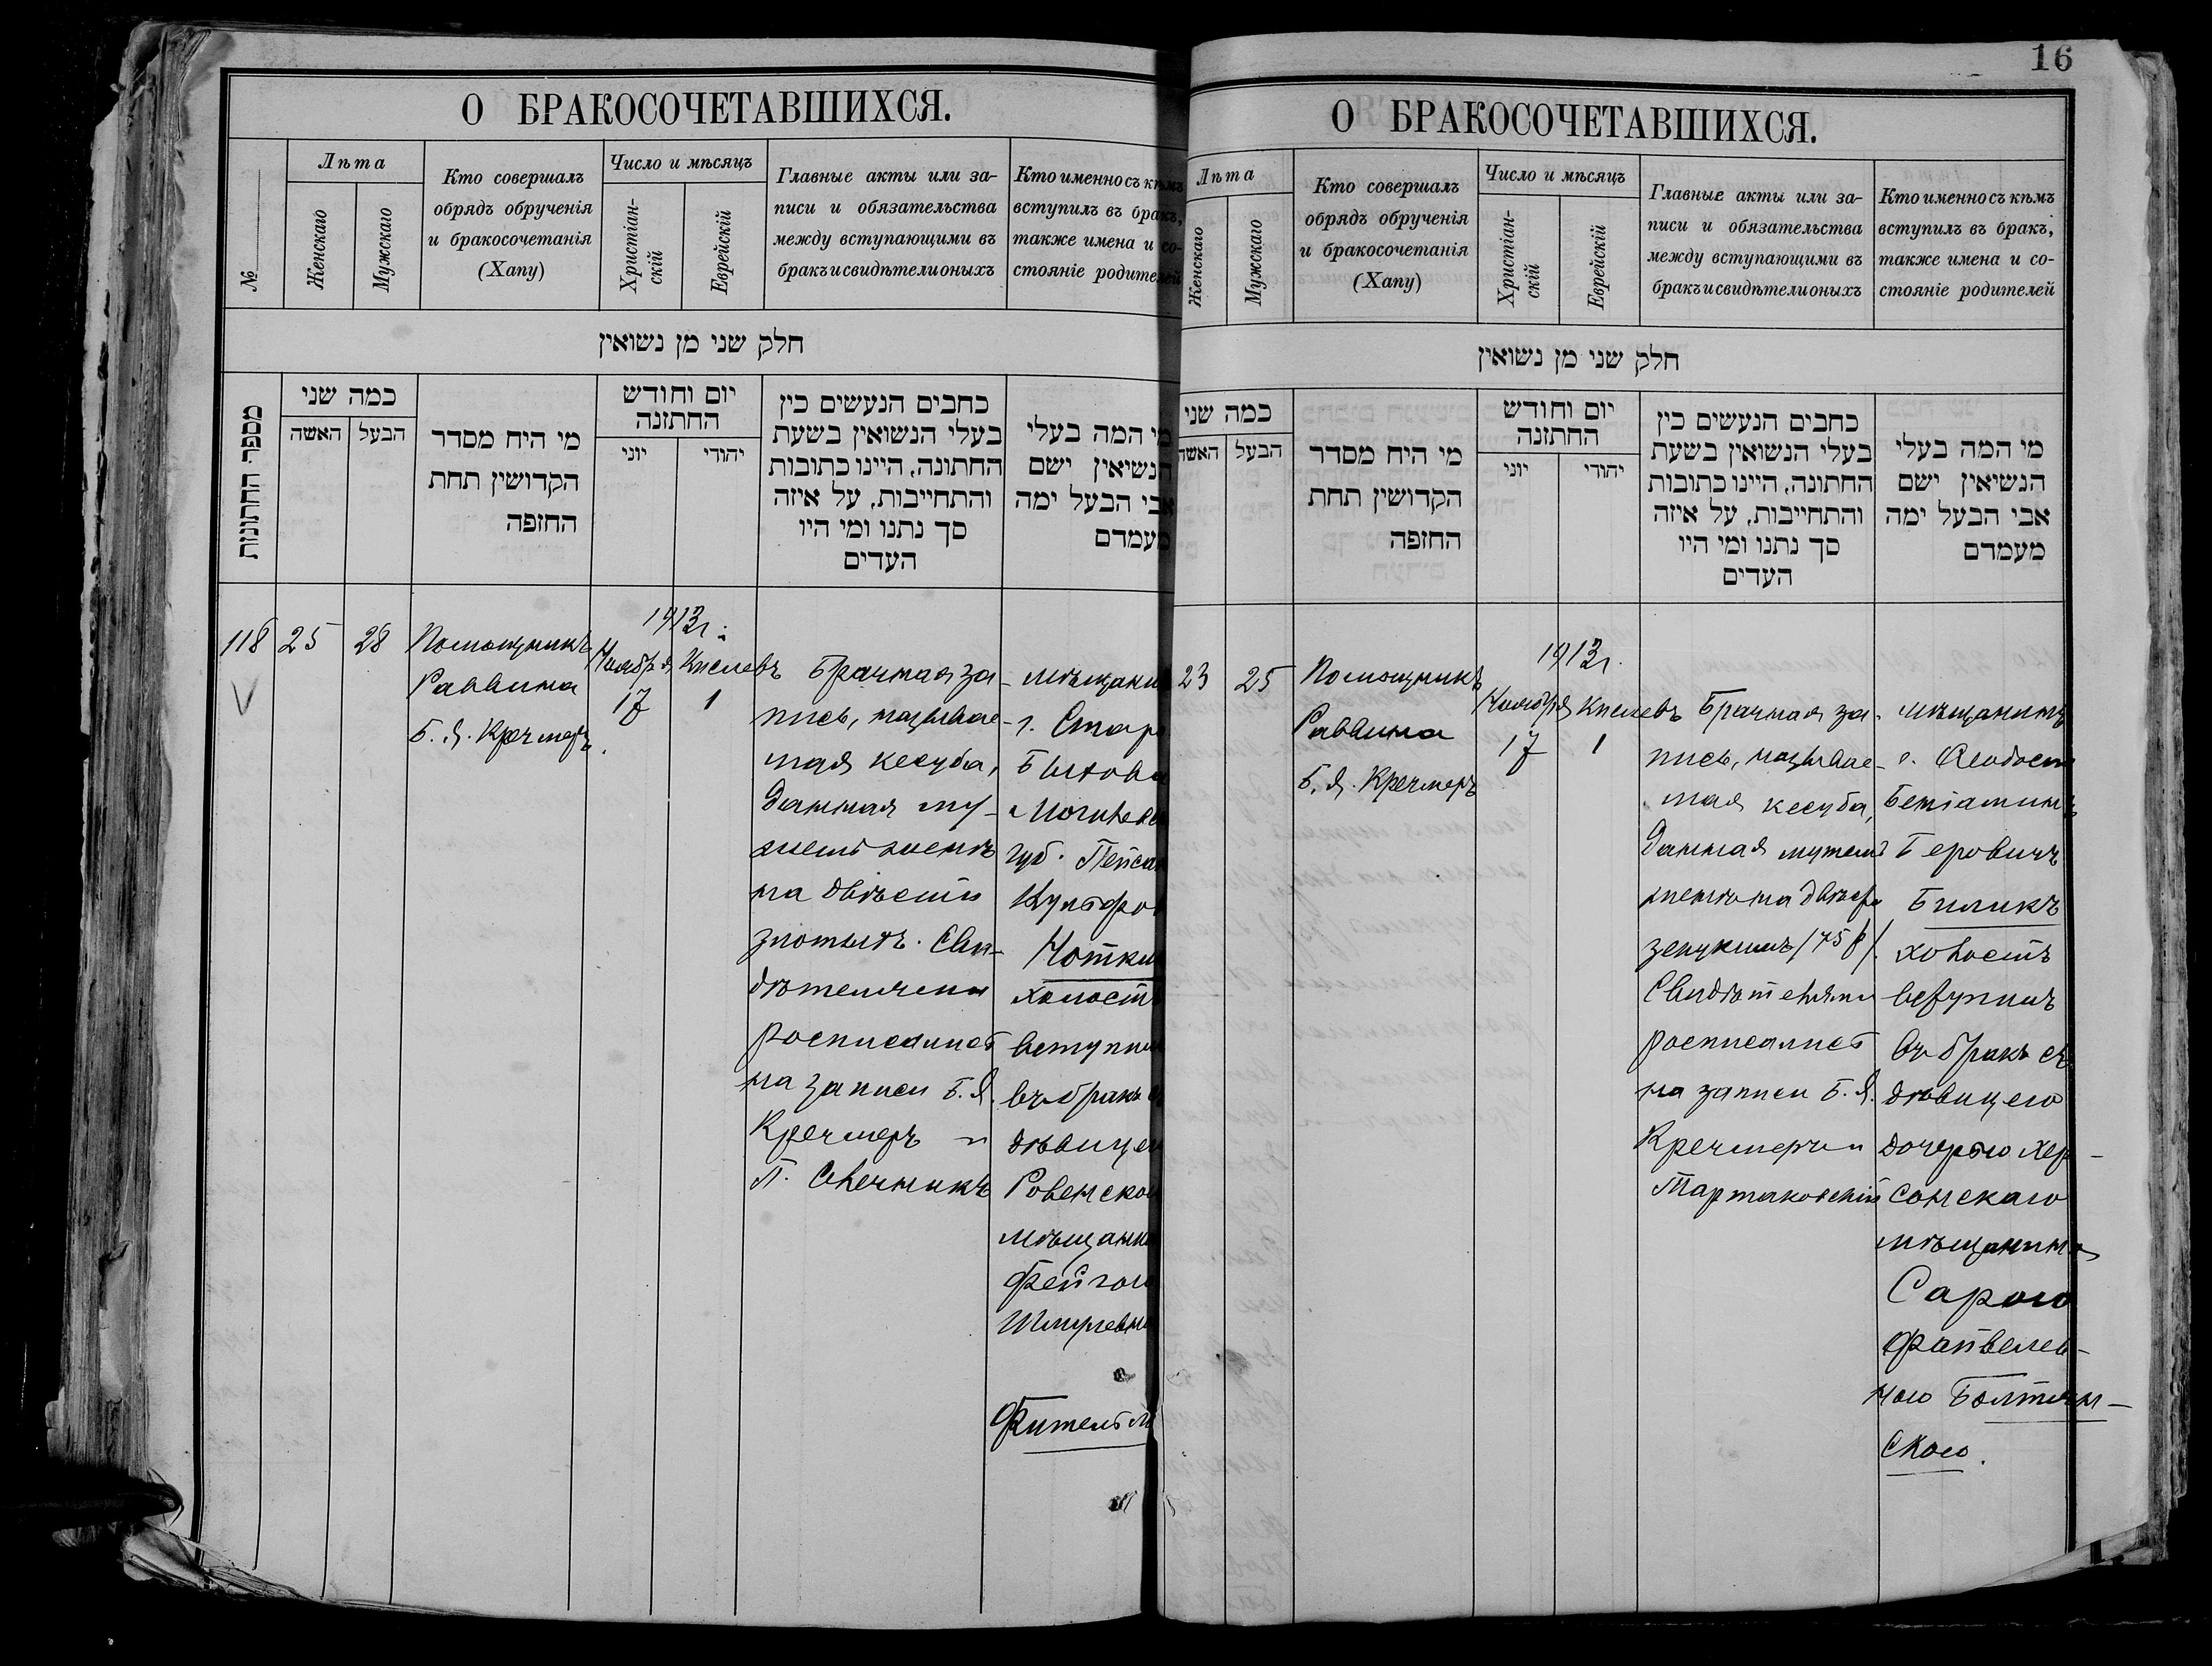 О БРАКОСОЧЕТАВШИХСЯ.
№
Лѣта
Женскаго
Мужскаго
Кто совершалъ
обрядъ обрученія
и бракосочетанія
(Хапу)
Число и мѣсяцъ
Христіан-
скій
Еврейскій
Главные акты или за-
писи и обязательства
между вступающими въ
бракъ и свидѣтели оныхъ
Кто именно съ кѣмъ
вступилъ въ бракъ,
также имена и со-
стояніе родителей
חלק שני מן נשואין
מספר החתונות
כמה שני
האשה
הבעל
מי היח מסדר
הקדושין תחת
החזפה
יום וחודש
החתזנה
יוני
יהודי
כחבים הנעשים כין
בעלי הנשואין בשעת
החתונה, היינו כתובות
והתחייבות, על איזה
סך נתנו ומי היו
העדים
מי המה בעלי
הנשיאין ישם
אבי הבעל ימה
מעמדם
118
25
28
Помощникъ
Раввина
Б. Я. Кречмеръ.
1913 г.
Ноября Кислевъ
17 1
Брачная за-
пись, называе-
мая кесуба,
данная му-
жемъ женѣ
на двѣсти
злотыхъ. Сви-
дѣтелями
росписались
на записи Б. Я.
Кречмеръ и
П. Свечникъ
мѣщанин
г. Старо
Быхова
Могилевск
губ. Пейсах
Нотки
холостъ
вступил
въ бракъ съ
дѣвицею
Ровенскою
мѣщанк
Фейгою
Шмулевно
Фительм
16
О БРАКОСОЧЕТАВШИХСЯ.
Лѣта
Женскаго
Мужскаго
Кто совершалъ
обрядъ обрученія
и бракосочетанія
(Хапу)
Число и мѣсяцъ
Христіан-
скій
Еврейскій
Главные акты или за-
писи и обязательства
между вступающими въ
бракъ и свидѣтели оныхъ
Кто именно съ кѣмъ
вступилъ въ бракъ,
также имена и со-
стояніе родителей
חלק שני מן נשואין
כמה שני
האשה
הבעל
מי היח מסדר
הקדושין תחת
החזפה
יום וחודש
החתזנה
יוני
יהודי
כחבים הנעשים כין
בעלי הנשואין בשעת
החתונה, היינו כתובות
והתחייבות, על איזה
סך נתנו ומי היו
העדים
מי המה בעלי
הנשיאין ישם
אבי הבעל ימה
מעמדם
23
25
Помощникъ
Раввина
Б. Я. Кречмеръ
1913 г.
Ноября Кислевъ
17 1
Брачная за-
пись, называе-
мая кесуба,
данная мужемъ
женѣ на двѣсти
зекукимъ /75 р/.
Свидѣтелями
росписались
на записи Б. Я.
Кречмеръ и
Тартаковскій
мѣщанинъ
г.
Беніаминъ
Беровичъ
Биликъ
холостъ
вступилъ
въ бракъ съ
дѣвицею
дочерью Хер-
сонскаго
мѣщанина
Сарою
Файвелев-
ною Болтян-
скою.